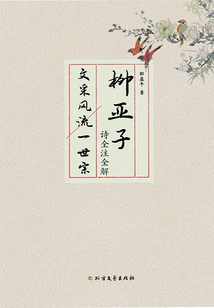 柳亚子
诗全注全解
文采风流一世宗
北方文艺出版社